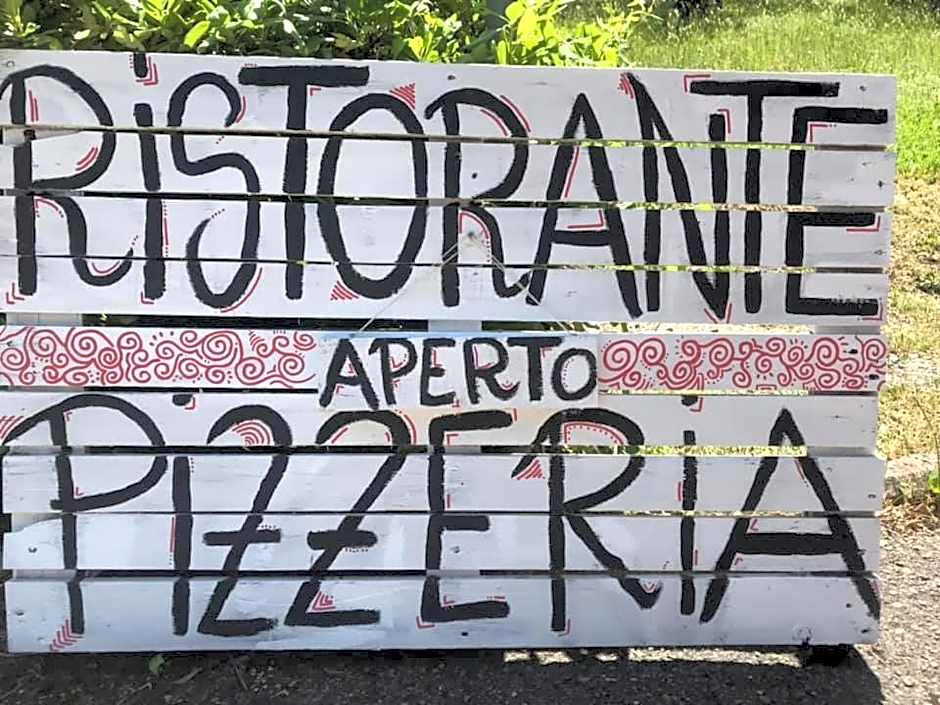 RiSTORANTE
APERTO
PiZZERiA